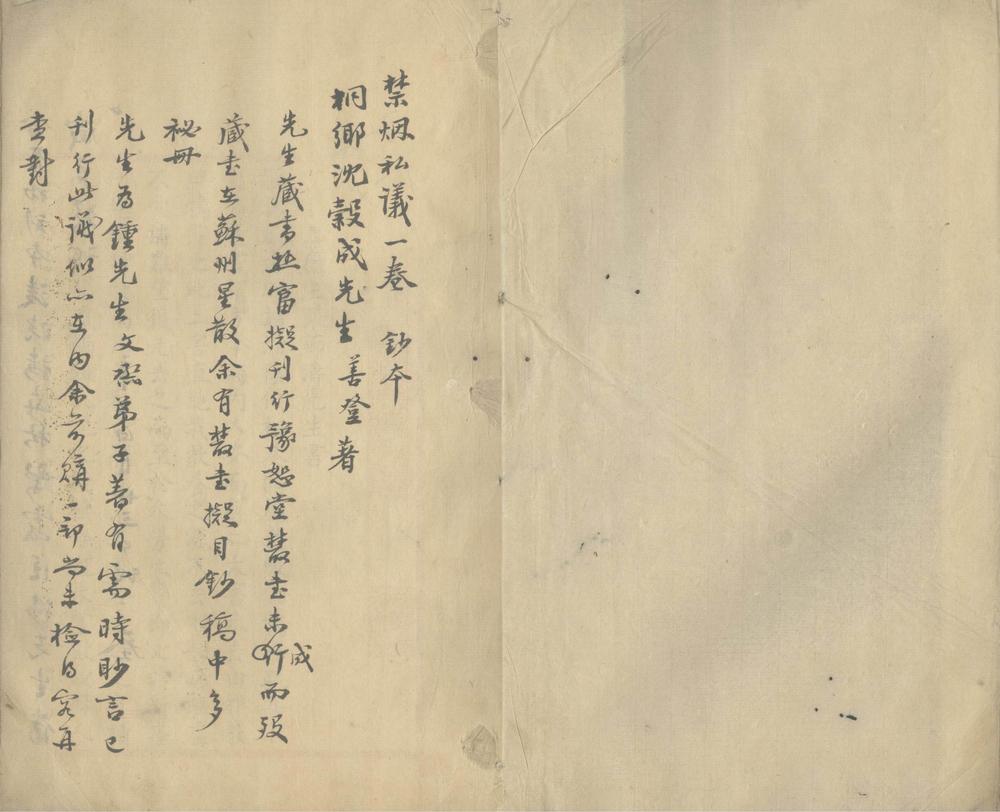 禁烟私議一卷 鈔本
桐鄉沈穀成先生善登著
先生藏書極富擬刊行豫恕堂叢書未成而歿
藏書在蘇州星散余有叢書擬目鈔稿中多
祕冊
先生為鍾先生文烝弟子著有需時眇言已
刊行此議似亦在內余前購一部尚未檢得容再
查對